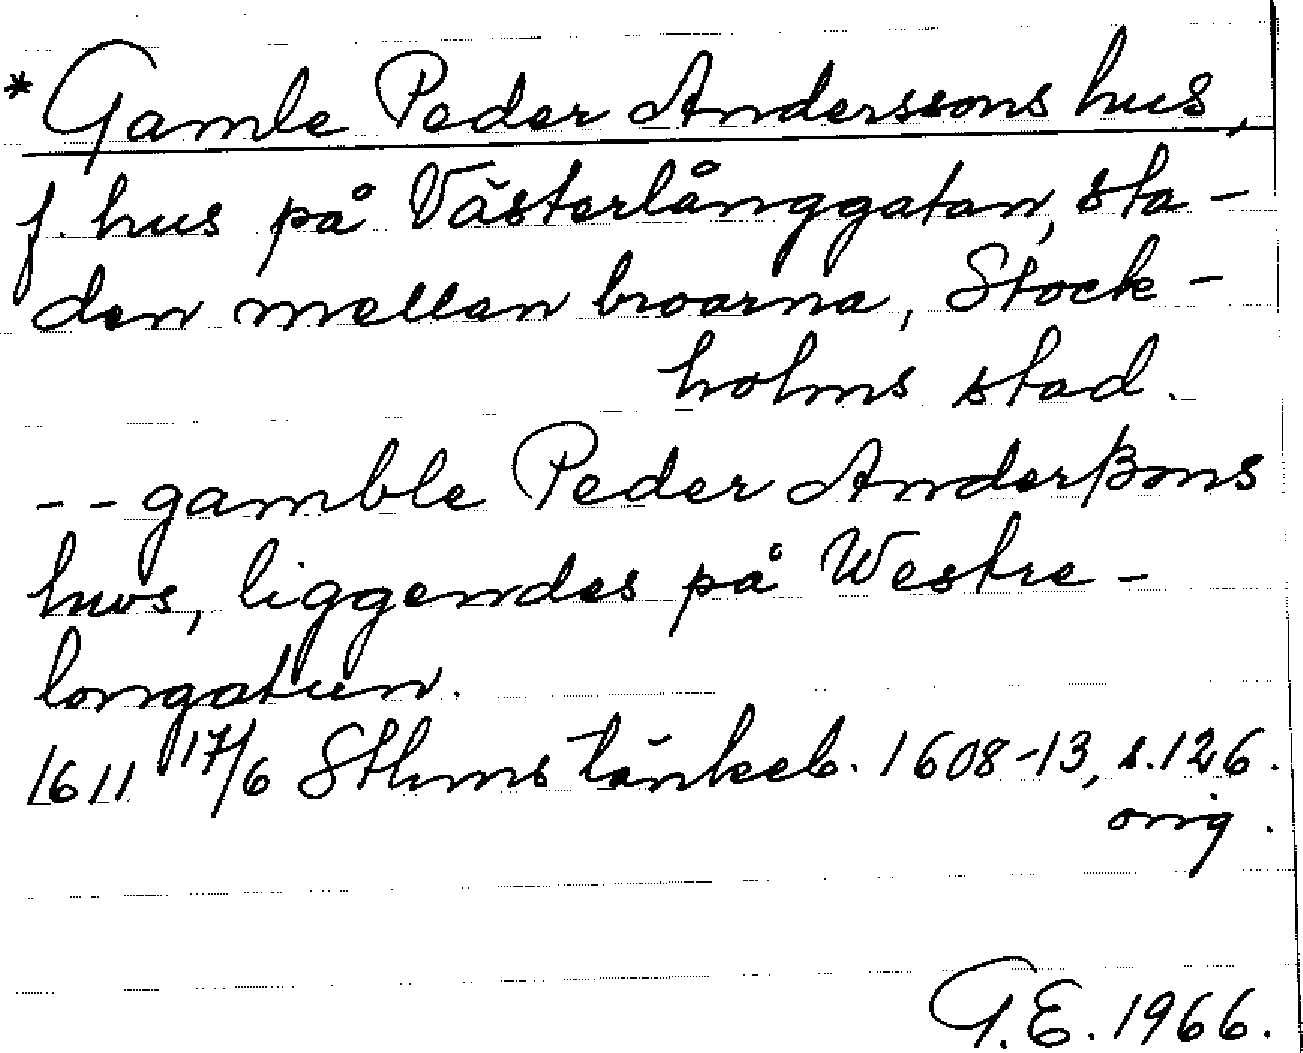 * Gamle Peder Anderssons hus,
f. hus på Västerlånggatan, sta-
den mellan broarna, Stock-
holms stad.
-- gamble Peder Anderßons
hws, liggendes på Westre-
longatun.
1611 17/6 Sthms tänkeb. 1608-13, s. 126.
orig.
G.E. 1966.